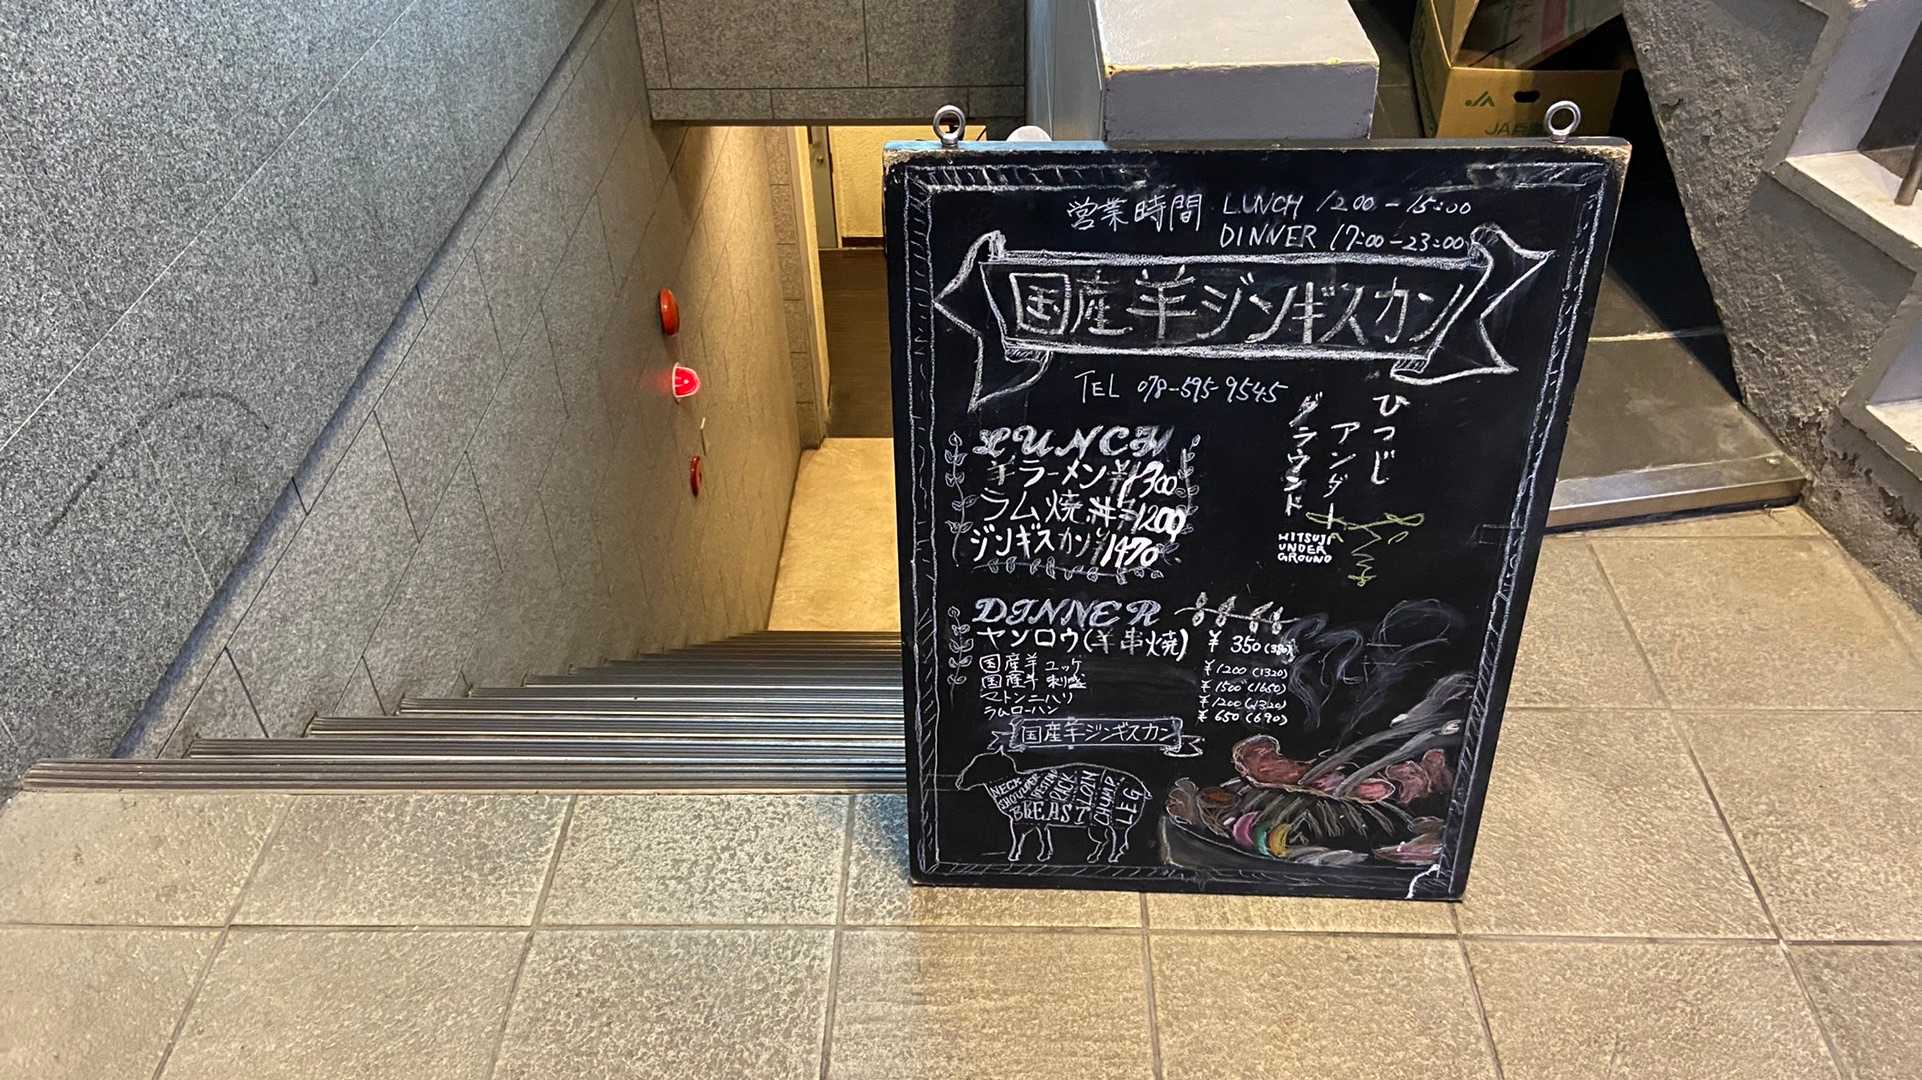 営業時間 LUNCH 12:00-15:00
DINNER 17:00-23:00
国産羊ジンギスカン
TEL 078-595-9545
ひつじ
アンダー
グラウンド
HITSUJI
UNDER
GROUND
LUNCH
羊ラーメン ¥1300
ラム焼 ¥1200
ジンギスカン ¥1470
DINNER
ヤンロウ(羊串焼) ¥350
国産羊ユッケ ¥1200(1320)
国産羊刺盛 ¥1500(1650)
マトンニハリ ¥1200(1320)
ラムローハン ¥650(690)
国産羊ジンギスカン
NECK
SHOULDER
RACK
LOIN
CHUMP
LEG
BREAST
JA